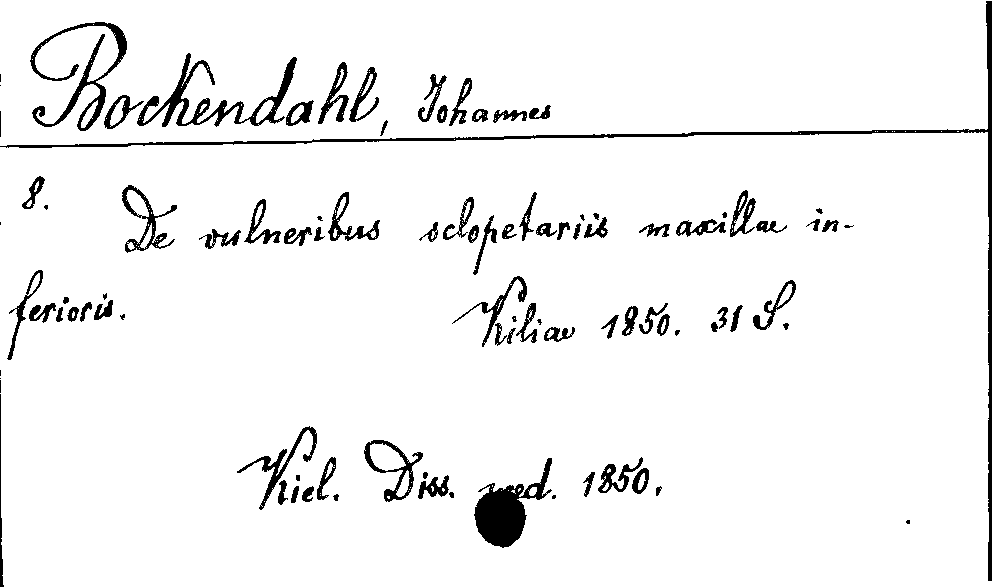 Bockendahl, Johannes
8. De vulneribus sclopetariis maxillae in-
ferioris.
Kiliae 1850. 31 S.
Kiel. Diss. med. 1850.